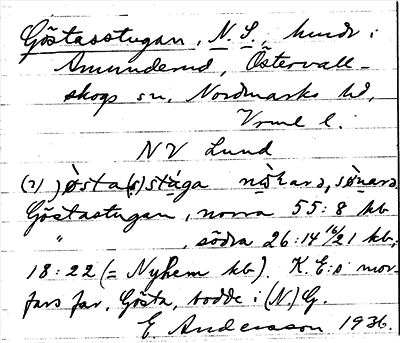 Göstasstugan, N. S., hund i
Amunderud, Östervall-
skogs sn, Nordmarks hd,
Vrml l.
NV Lund
(2) jøsta(s)stúga
Göstastugan, norra 55:8 kb
" , södra 26:14 16/21 kb,
18:22 (= Nyhem kb). K. E:s mor-
fars far, Gösta, bodde i (N) G.
E. Andersson 1936.